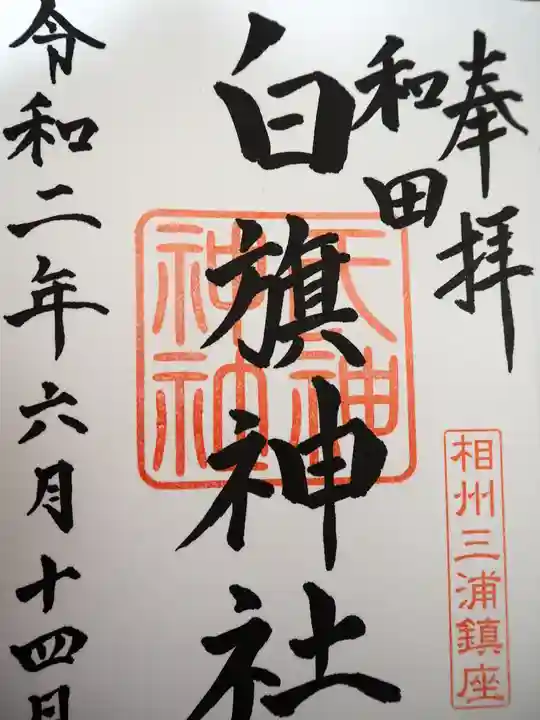 奉拝
相州三浦鎮座
和田
白旗神社
天神
神社
令和二年六月十四日